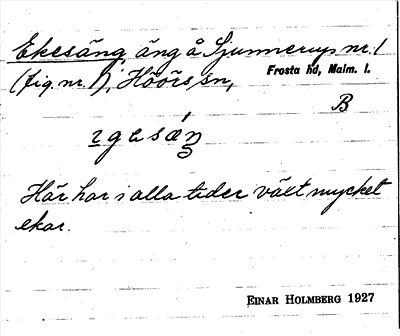 Ekesäng, äng å Sjunnerup nr. 1
(fig. nr. 1); Höörs sn,
Frosta hd, Malm. l.
B
Här har i alla tider växt mycket
ekar.
EINAR HOLMBERG 1927